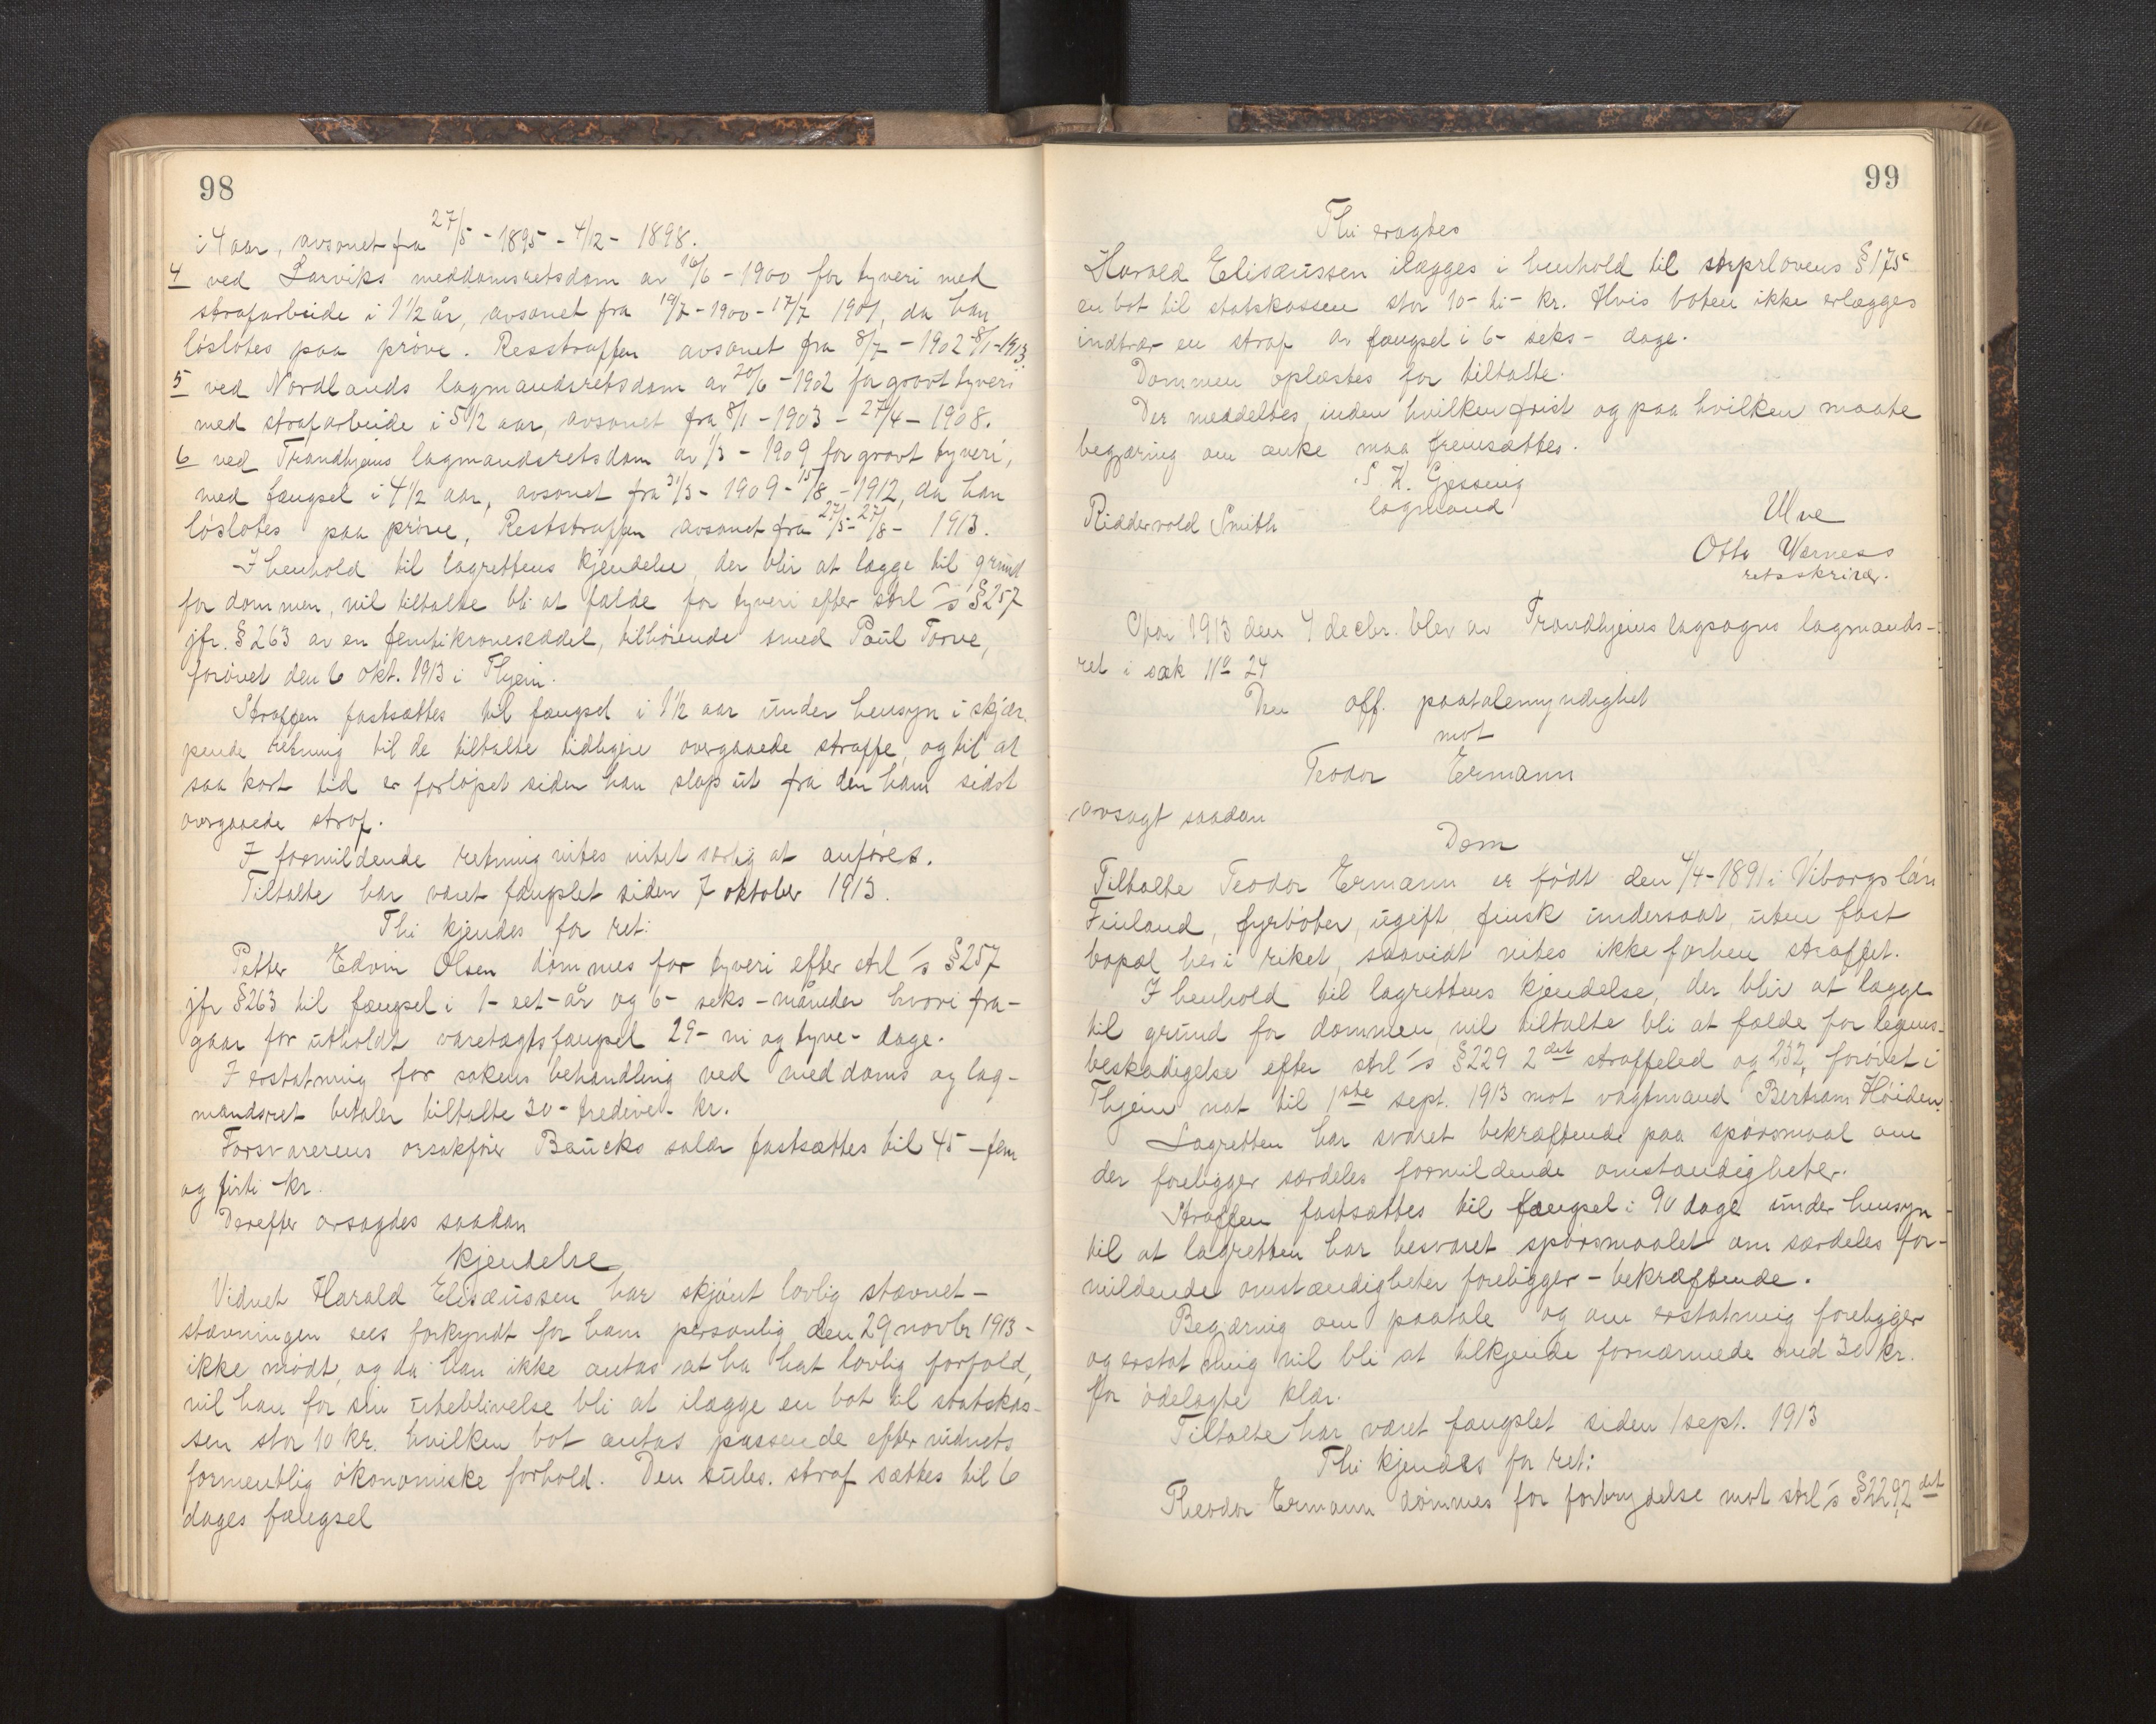 98
i 4 aar, avsonet fra 27/5 - 1895 - 4/12 - 1898.
4 ved Larviks meddomsretsdom av 16/6 - 1900 for tyveri med
strafarbeide i 1 1/2 år, avsonet fra 19/7 - 1900 - 17/7 1901, da han
løslotes paa prøve. Resstraffen avsonet fra 8/7 - 1902 8/1 - 1913
5 ved Nordlands lagmandsretsdom av 20/6 - 1902 for grovt tyveri
med strafarbeide i 5 1/2 aar, avsonet fra 8/1 - 1903 - 27/4 - 1908.
6 ved Trondhjems lagmandsretsdom av 1/3 - 1909 for grovt tyveri,
med fængsel i 4 1/2 aar, avsonet fra 31/3 - 1909 - 15/8 - 1912, da han
løslotes paa prøve, Reststraffen avsonet fra 27/5 - 27/8 - 1913.
I henhold til lagrettens kjendelse, der blir at lægge til grund
for dommen, vil tiltalte bli at fælde for tyveri efter strl's § 257
jfr. § 263 av en femtikroneseddel, tilhørende smed Paul Torve,
forøvet den 6 okt. 1913 i Thjem.
Straffen fastsættes til fængsel i 1 1/2 aar under hensyn i skjær-
pende retning til de tiltalte tidligere overgaaede straffe, og til at
saa kort tid er forløpet siden han slap ut fra den ham sidst
overgaaede straf.
I formildende retning vites intet særlig at anføres.
Tiltalte har været fængslet siden 7 oktober 1913.
Thi kjendes for ret:
Petter Edvin Olsen dømmes for tyveri efter strl's § 257
jfr § 263 til fængsel i 1 - eet - år og 6 - seks - måneder hvori fra-
gaar for utholdt varetægtsfængsel 29 - ni og tyve - dage.
I erstatning for sakens behandling ved meddoms og lag-
mandsret betaler tiltalte 30 - tredive - kr.
Forsvarerens orsakfører Baucks salær fastsættes til 45 - fem
og firti - kr.
Derefter avsagdes saadan
kjendelse
Vidnet Harald Elisæussen har skjønt lovlig stævnet -
stævningen sees forkyndt for ham personlig den 29 novbr 1913 -
ikke mødt, og da han ikke antas at ha hat lovlig forfald,
vil han for sin uteblivelse bli at ilægge en bot til statskas-
sen stor 10 kr. hvilken bot antas passende efter vidnets
formentlig økonomiske forhold. Den subs. straf sættes til 6
dages fængsel
99
Thi eragtes
Harald Elisæussen ilægges i henhold til strprlovens § 175
en bot til statskassen stor 10 - ti - kr. Hvis boten ikke erlægges
indtrær en straf av fængsel i 6 - seks - dage.
Dommen oplæstes for tiltalte.
Der meddeltes, inden hvilken frist og paa hvilken maate
begjæring om anke maa fremsættes.
S. K. Gjessing
lagmand
Riddervold Smith
Ulve
Otto Værness
retsskriver.
Aar 1913 den 4 decbr. blev av Trondhjems lagsogns lagmands-
ret i sak No 24
Den off. paatalemyndighet
mot
Teodor Ermann
avsagt saadan
Dom
Tiltalte Teodor Ermann er født den 4/4 - 1891 i Viborgs län
Finland, fyrbøter, ugift, finsk undersaat, uten fast
bopæl her i riket, saavidt vites ikke forhen straffet.
I henhold til lagrettens kjendelse, der blir at lægge
til grund for dommen, vil tiltalte bli at fælde for legems-
beskadigelse efter strl's § 229 2det straffeled og 232, forøvet i
Thjem nat til 1ste sept. 1913 mot vagtmand Bertram Høiden.
Lagretten har svaret bekræftende paa spørsmaal om
der foreligger særdeles formildende omstændigheter.
Straffen fastsættes til fængsel i 90 dage under hensyn
til at lagretten har besvaret spørsmaalet om særdeles for-
mildende omstændigheter foreligger - bekræftende.
Begjæring om paatale og om erstatning foreligger
og erstatning vil bli at tilkjende fornærmede med 30 kr.
for ødelagte klær.
Tiltalte har været fængslet siden 1 sept. 1913
Thi kjendes for ret:
Theodor Ermann dømmes for forbrydelse mot strl's § 229, 2det